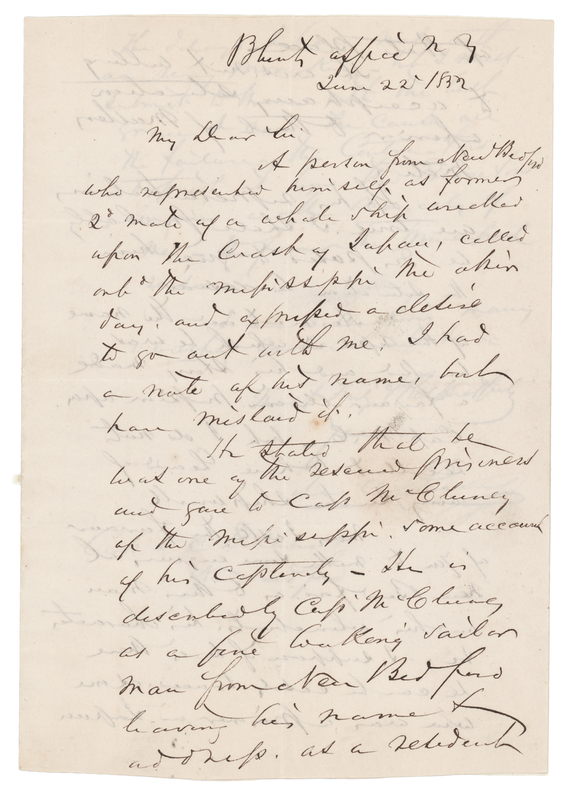 Blunts office N Y
June 22d 1852
My Dear Sir
A person from New Bedford
who represented himself as former
2d mate of a whale ship wrecked
upon the Coast of Japan, called
onbd the Mississippi the other
day. and expressed a desire
to go out with me. I had
a note of his name, but
have mislaid it.
He stated that he
was one of the rescued prisoners
and gave to Capt McCluney
of the Mississippi. some account
of his captivity – He is
described by Capt McCluney
as a fine looking sailor
man from New Bedford
leaving his name &
address. as a resident